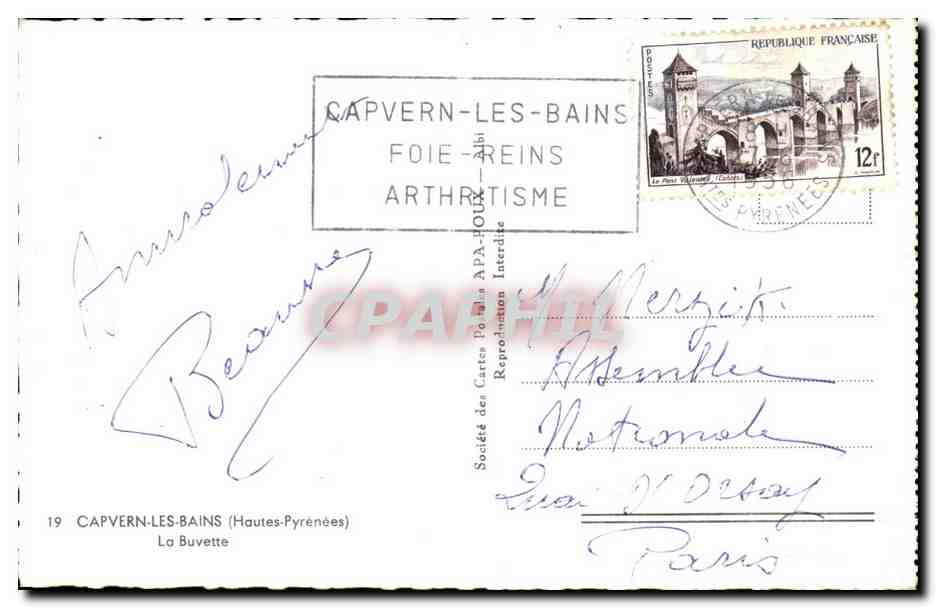 CAPVERN-LES-BAINS
FOIE-REINS
ARTHRITISME
REPUBLIQUE FRANÇAISE
POSTES
Le Pont Valentré (Cahors)
12F
1958
HTES PYRENEES
Amicalement
Beauvne
M Merzik
Assemblée
Nationale
Quai D'Orsay
Paris
Société des Cartes Postales APA-POUX - Albi
Reproduction Interdite
CPAPHIL
19 CAPVERN-LES-BAINS (Hautes-Pyrénées)
La Buvette